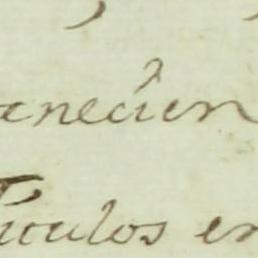 anecien
Titulos en